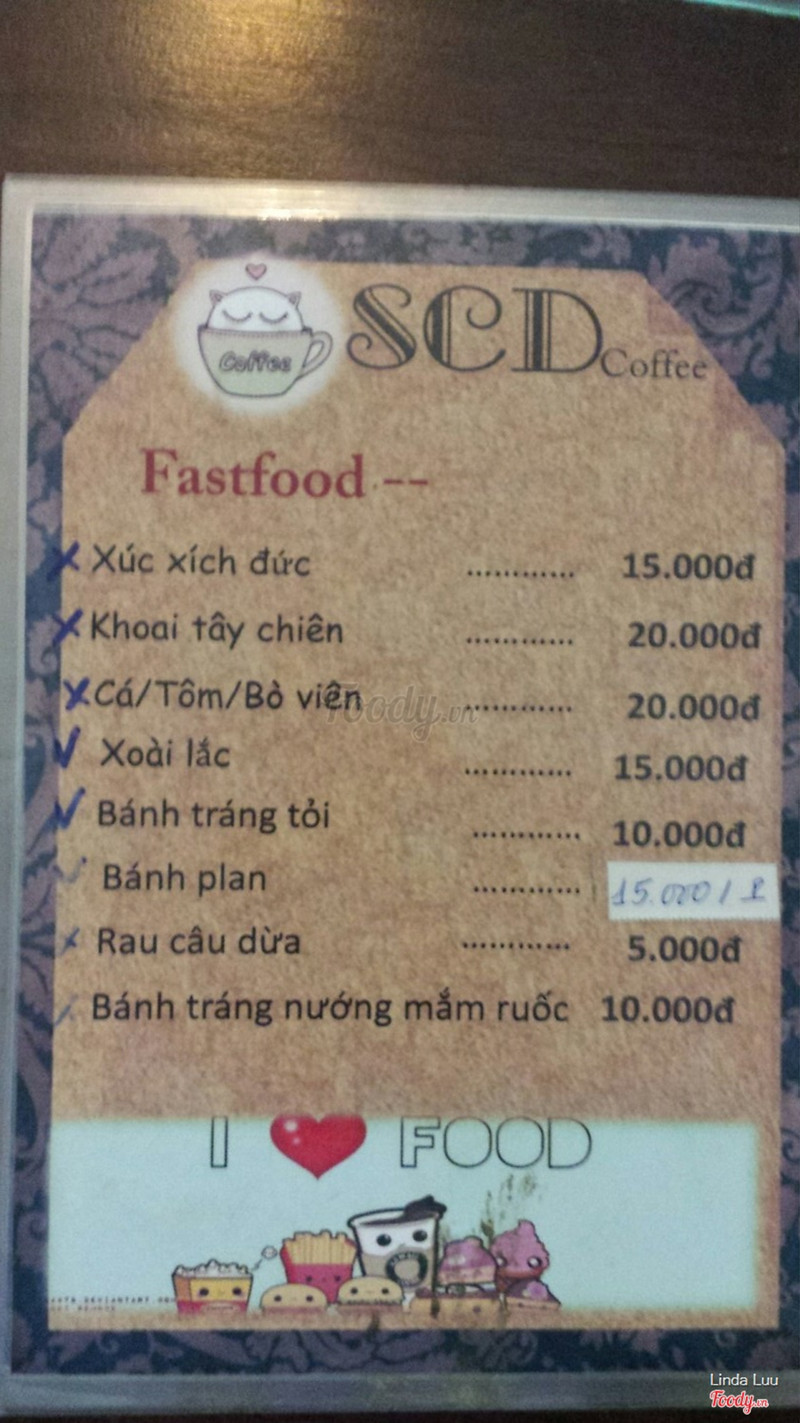 Coffee
SCD Coffee
Fastfood --
Xúc xích đức ............ 15.000đ
Khoai tây chiên ............ 20.000đ
Cá/Tôm/Bò viên ............ 20.000đ
Foody.vn
Xoài lắc ............ 15.000đ
Bánh tráng tỏi ............ 10.000đ
Bánh plan ............ 15.000/
Rau câu dừa ............ 5.000đ
Bánh tráng nướng mắm ruốc 10.000đ
I ❤ FOOD
Linda Luu
Foody.vn